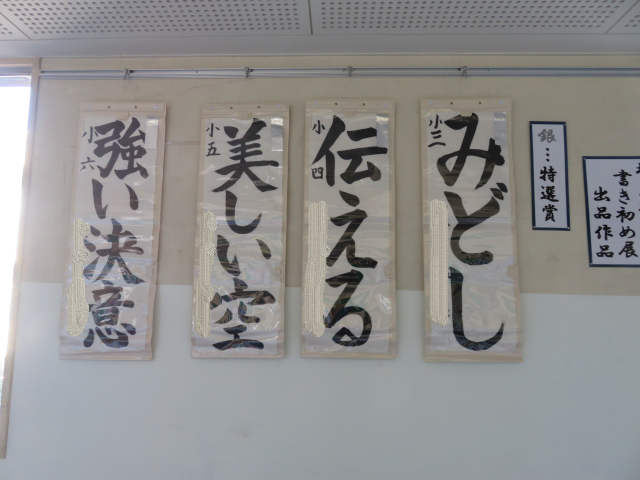 書き初め展
出品作品
銀…特選賞
みどし
小三
伝える
小四
美しい空
小五
強い決意
小六